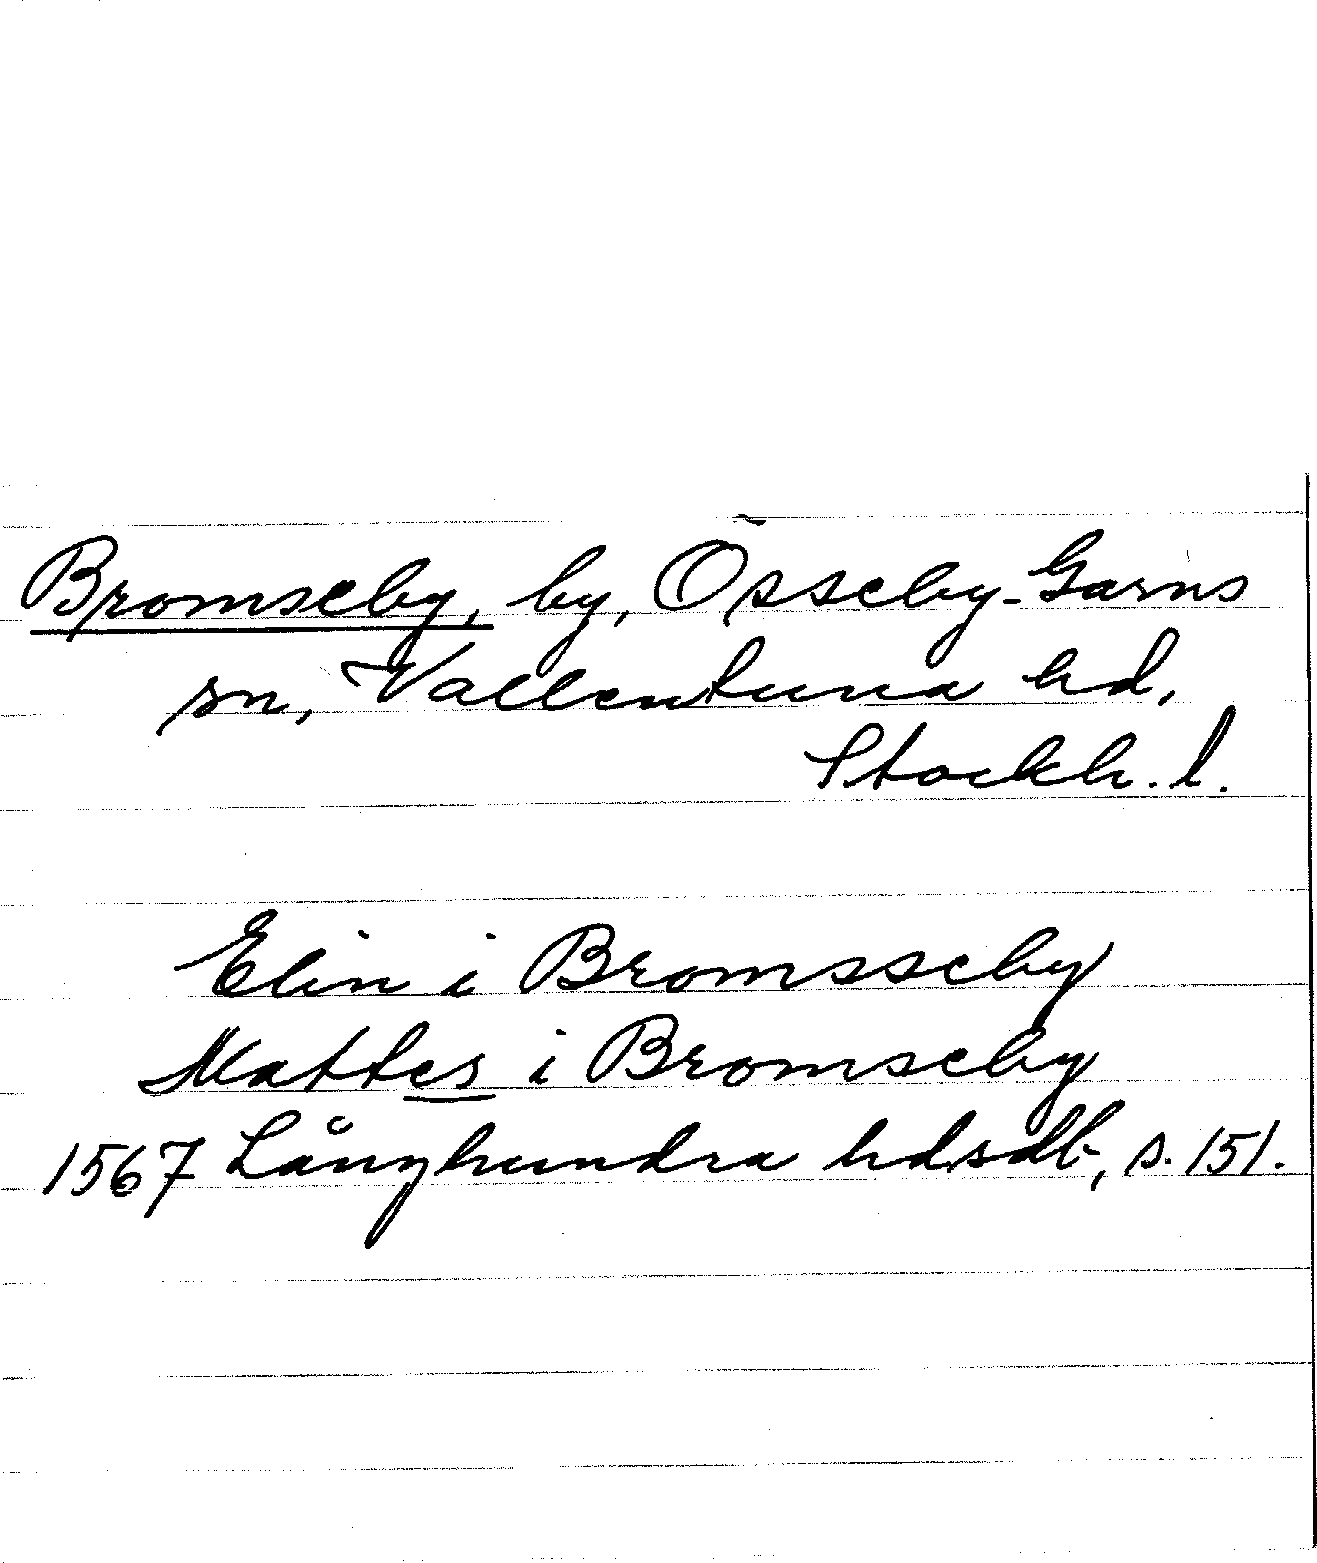 Bromseby, by, Össeby-Garns
sn, Vallentuna hd,
Stockh. l.
Elin i Bromsseby
Mattes i Bromseby
1567 Långhundra hdsdb, s. 151.